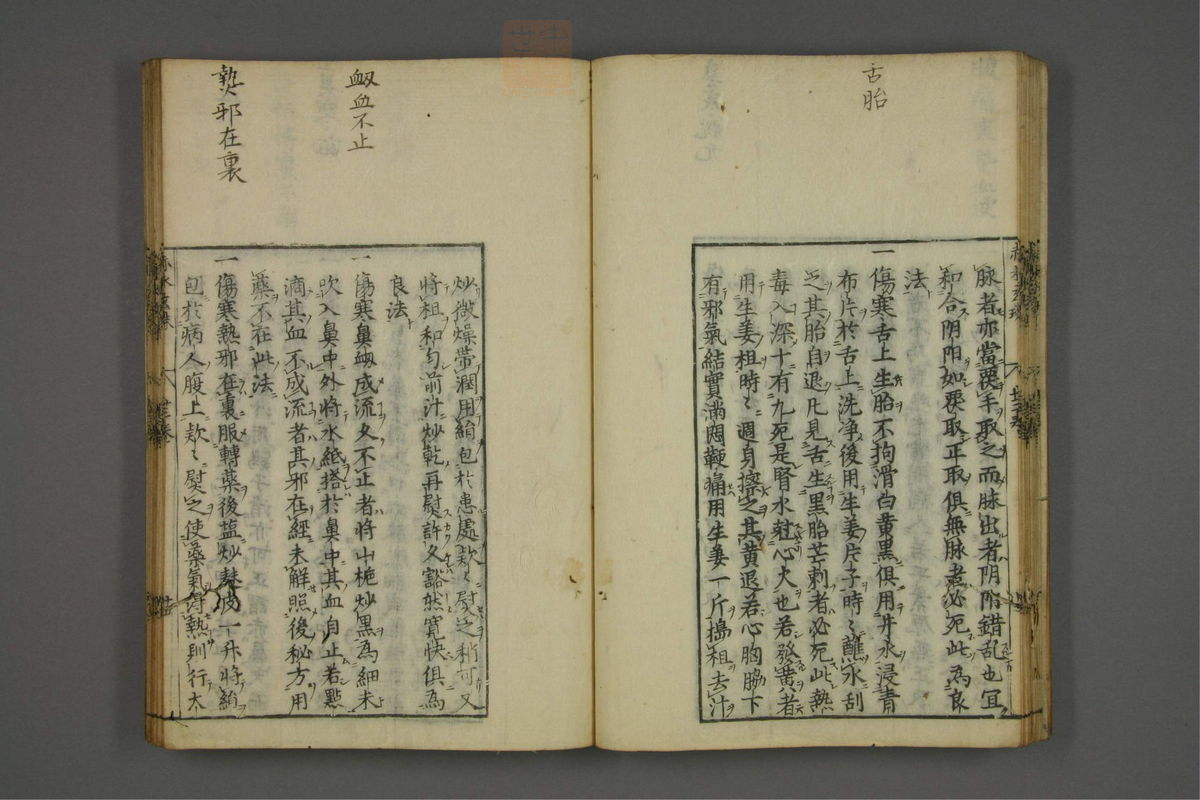 舌胎
脉者亦當覆手取之而脉出者阴阳錯乱也冝
和合阴阳如覆取正取俱無脉者必死此為良
法
一傷寒舌上生胎不拘滑白黄黑俱用井水浸青
布片於舌上洗净後用生姜片子時〻蘸水刮
之其胎自退凡見舌生黑胎芒刺者必死此熱
毒入深十有九死是腎水尅心火也若發黄者
用生姜柤時〻週身擦之其黄退若心胸脇下
有邪氣結實滿悶鞕痛用生姜一斤搗柤去汁
衂血不止
熱邪在裏
炒微燥帯潤用絹包於患處欵〻熨之稍可又
將柤和匀前汁炒乾再熨許久豁然寛快俱為
良法
一傷寒鼻衂成流久不止者将山栀炒黑為細末
吹入鼻中外將水紙搭於鼻中其血自止若點
滴其血不成流者其邪在經未解照後秘方用
藥不在此法
一傷寒熱邪在裏服轉藥後塩炒麸皮一升將絹
包於病人腹上欵〻熨之使藥氣得熱則行大